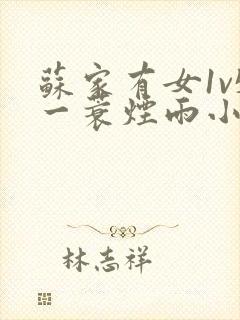 蘇家有女1v
一蓑煙雨小
林志祥